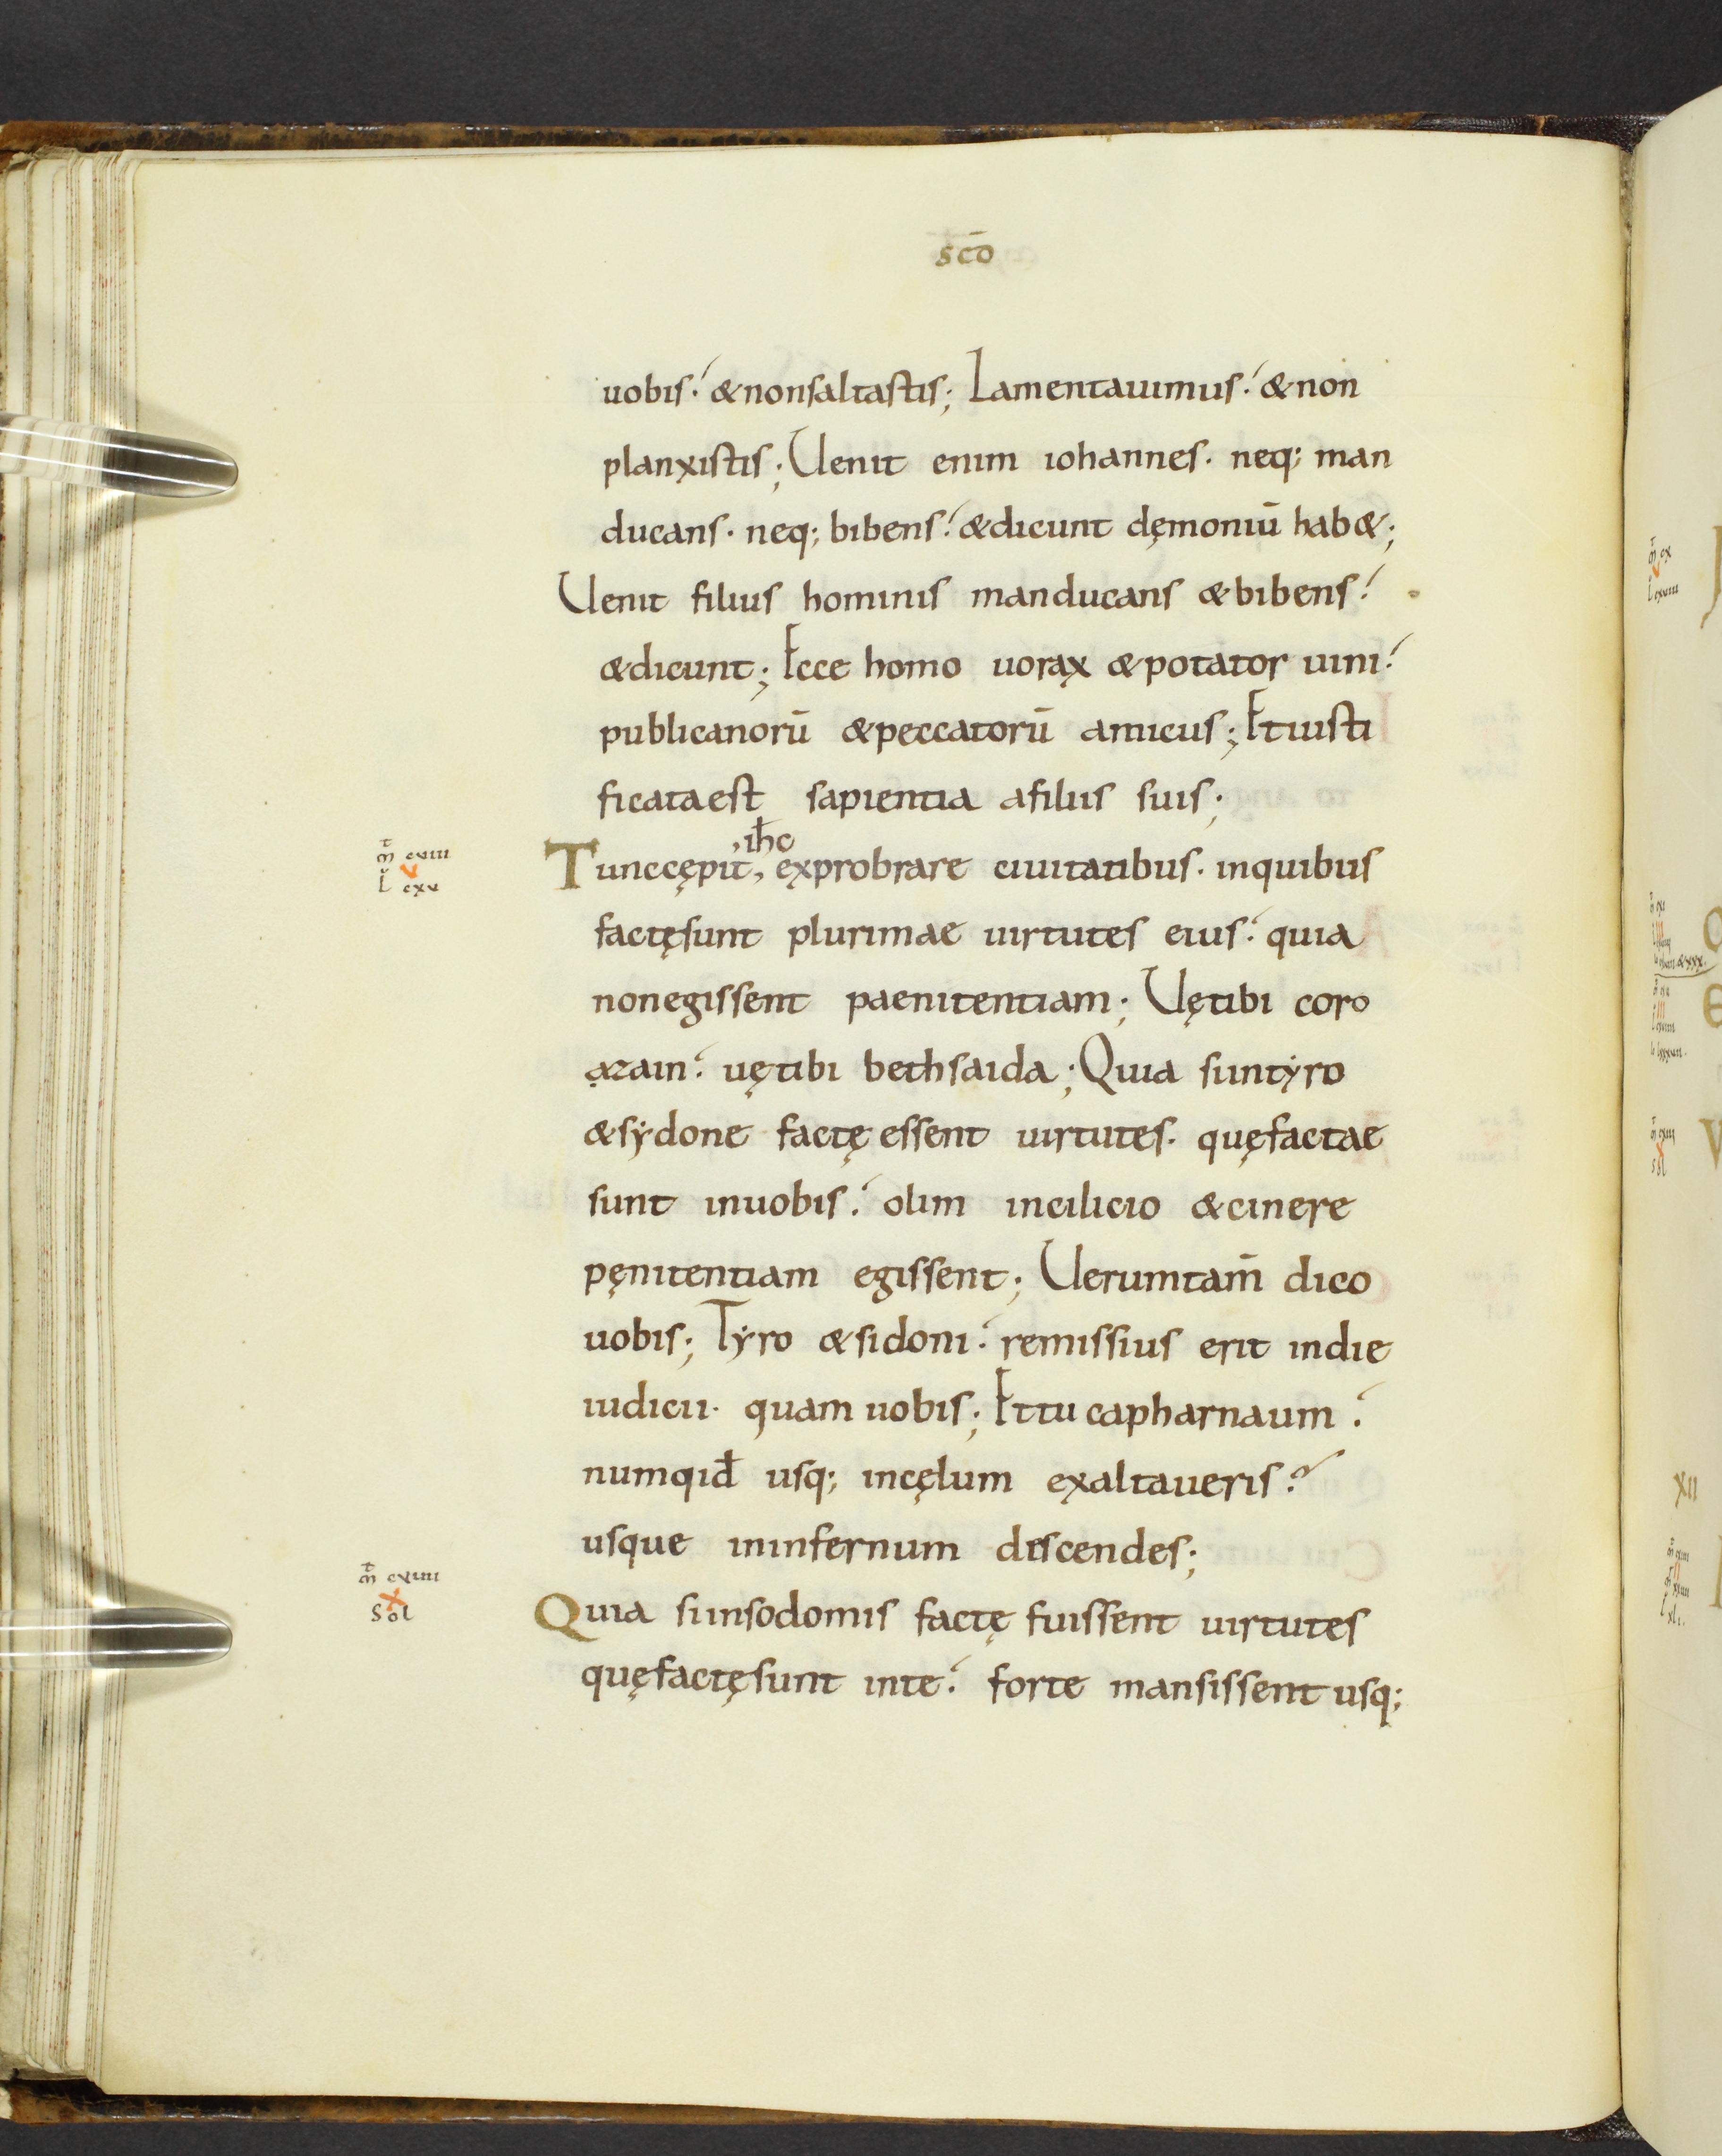 scō
uobis. &nonsaltastis; Lamentauimus. &non
planxistis; Uenit enim iohannes. neq; man
ducans. neq; bibens. &dicunt dęmoniū hab&;
Uenit filius hominis manducans &bibens.
&dicunt; Ecce homo uorax &potator uini.
publicanorū &peccatorū amicus; Etiusti
ficataest sapientia afiliis suis;
m̄ cviiii
v
L cxv
,ih̄c
Tunccępit, exprobrare ciuitatibus. inquibus
factęsunt plurimae uirtutes eius. quia
nonegissent paenitentiam; Uętibi coro
azain. uętibi bethsaida; Quia siintẏro
&sẏdone factę essent uirtutes. quęfactae
sunt inuobis. olim incilicio &cinere
pęnitentiam egissent; Uerumtam̄ dico
uobis; Tẏro &sidoni. remissius erit indie
iudicii. quam uobis; Ettu capharnaum.
numqid̄ usq; incęlum exaltaueris?
usque ininfernum discendes;
m̄ cviiii
x
Sol
Quia siinsodomis factę fuissent uirtutes
quęfactęsunt inte. forte mansissent usq;
xii